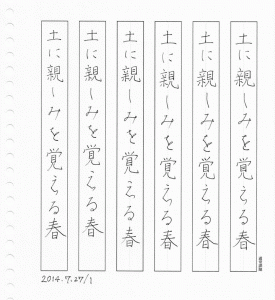 土に親しみを覚える春
土に親しみを覚える春
土に親しみを覚える春
土に親しみを覚える春
土に親しみを覚える春
土に親しみを覚える春
2014.7.27/1